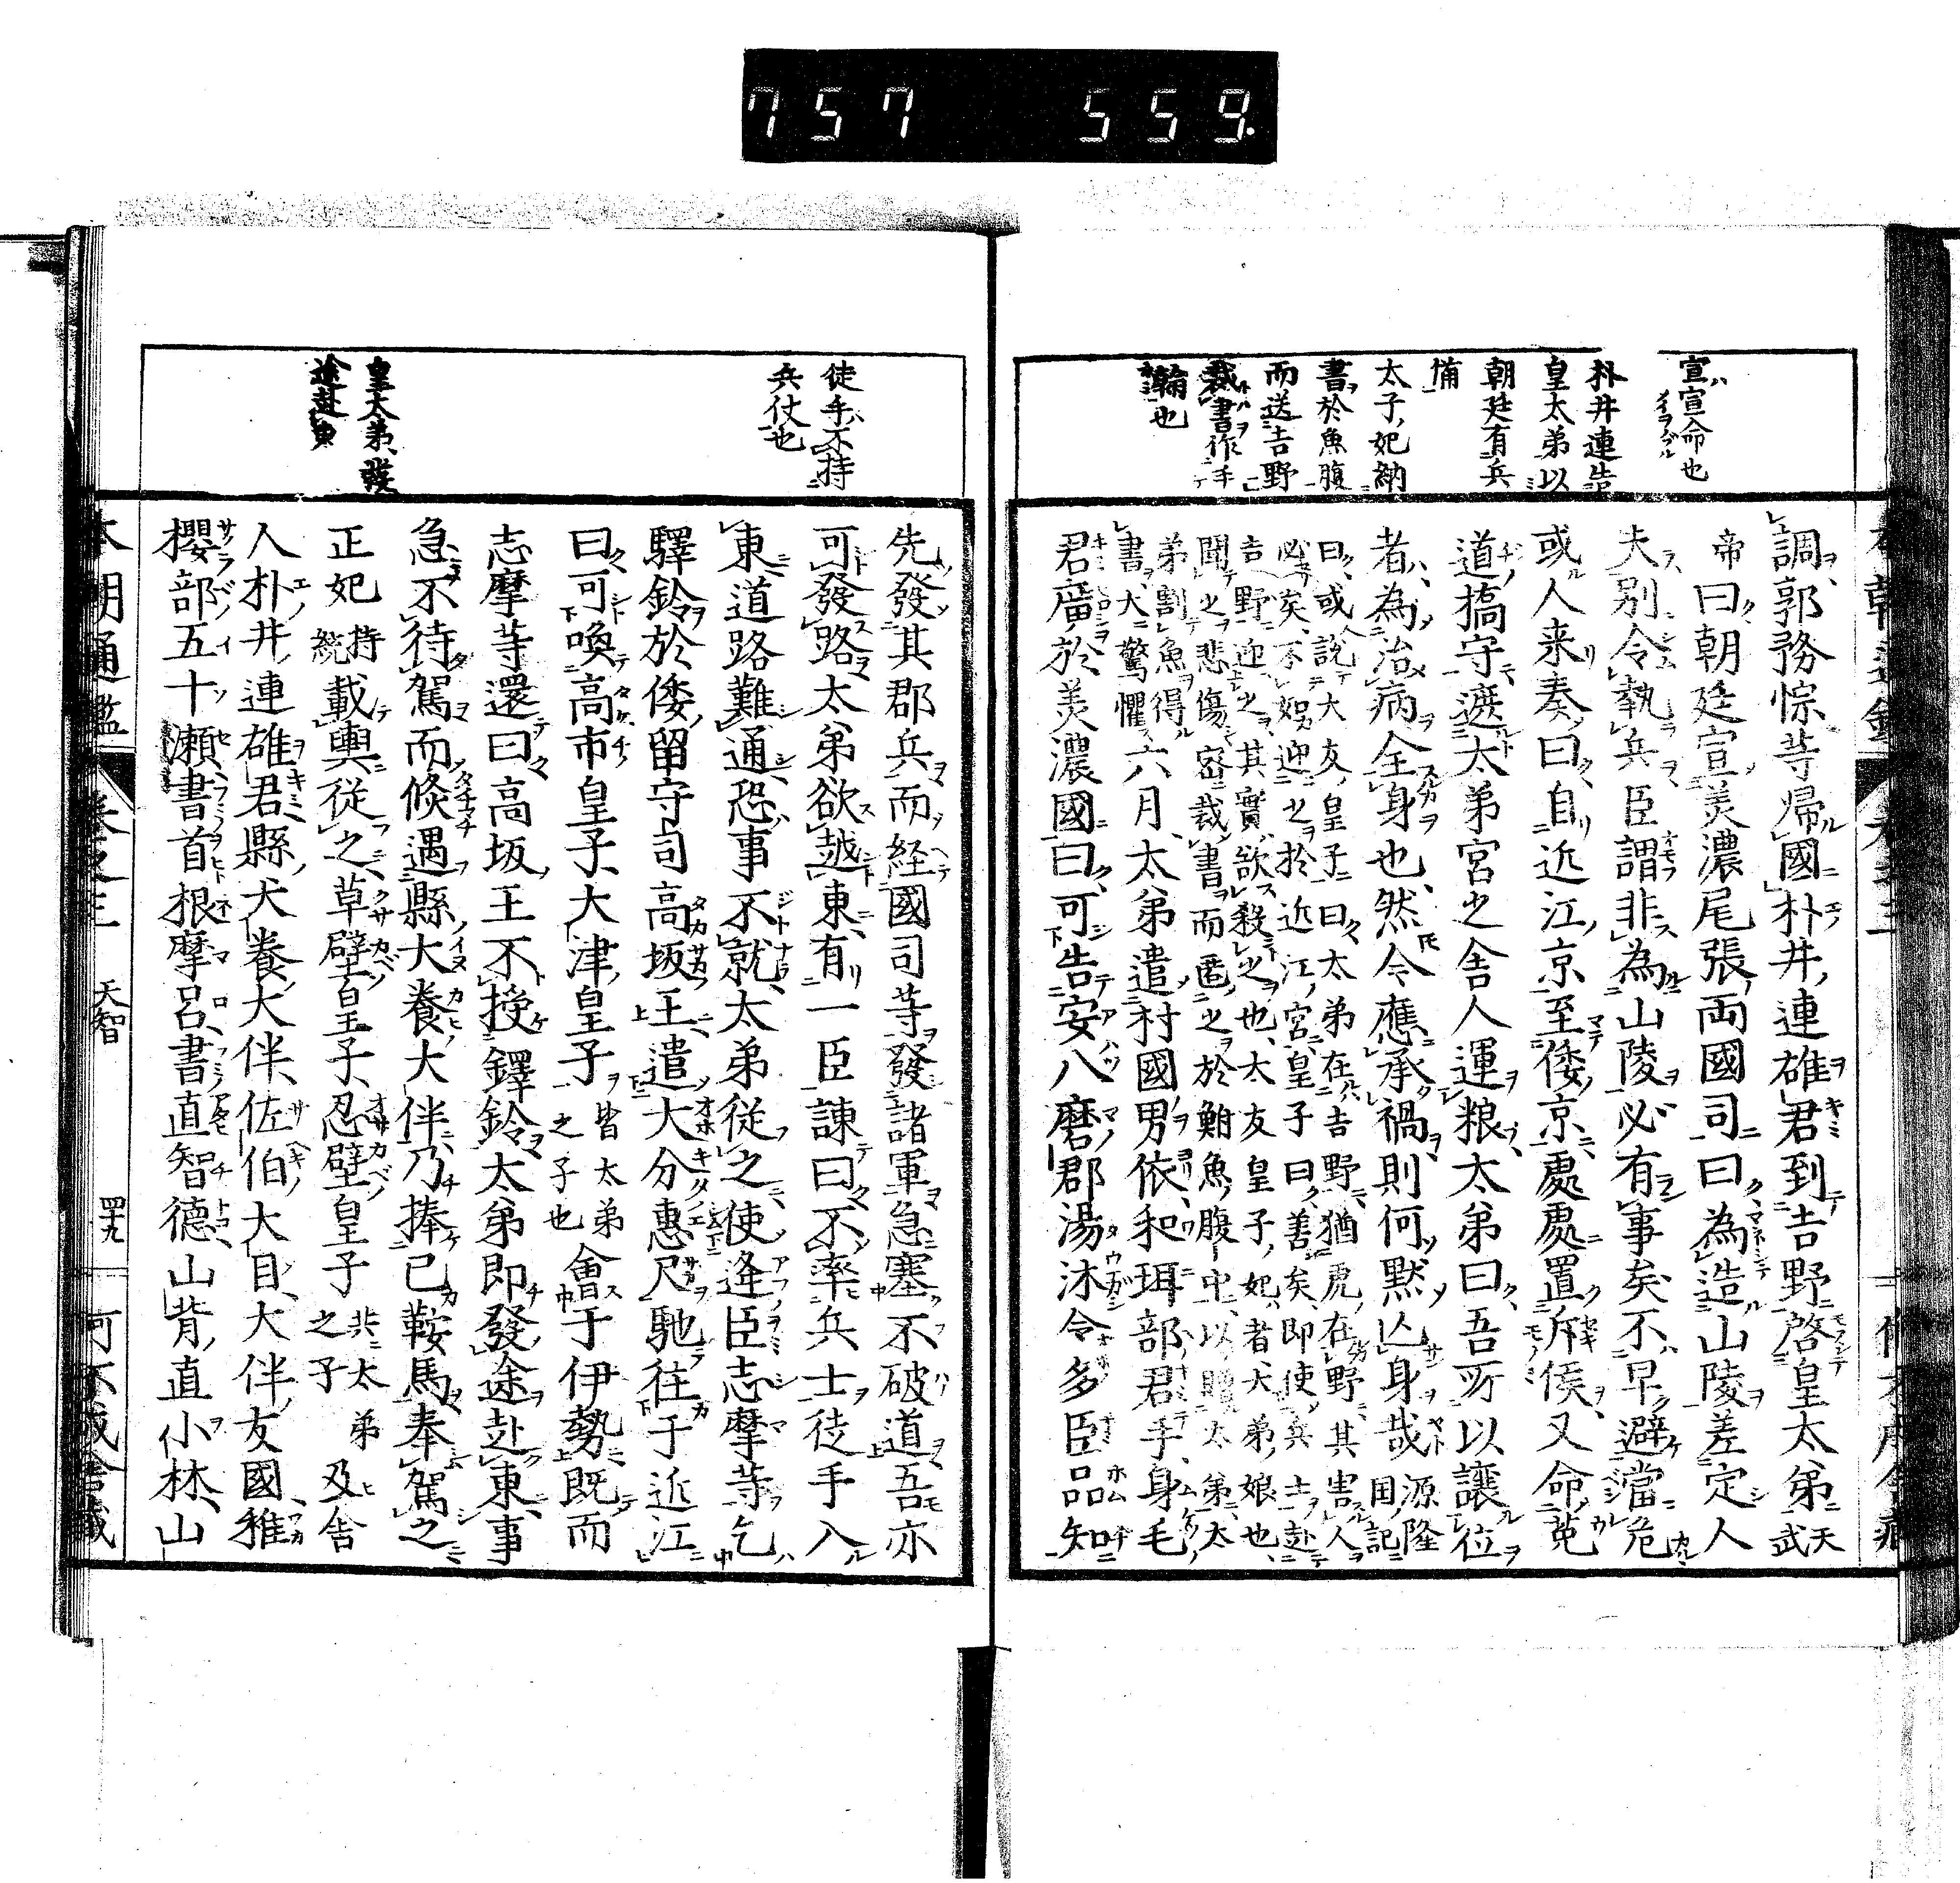 757 559.
宣宣命也
朴井連告
皇太弟以
朝廷有兵
備
太子妃納
書於魚腹
而送吉野
裁書作手
翰也
調郭務悰等帰國朴井連雄君到吉野啓皇太弟天武
帝曰朝廷宣美濃尾張両國司曰為造山陵差定人
夫別令執兵臣謂非為山陵必有事矣不早避當危
或人来奏曰自近江京至倭京處處置斥候又命菟
道搞守遮太弟宮之舎人運粮太弟曰吾所以譲位
者為治病全身也然今應承禍則何黙亾身哉源隆国記
曰或説大友皇子曰太弟在吉野猶虎在野其害人
必矣不如迎之於近江宮皇子曰善矣即使兵士赴
吉野迎之其實欲殺之也太友皇子妃者太弟娘也
聞之悲傷密裁書而匿之於鮒魚腹中以贈太弟太
弟割魚得
書大驚懼六月太弟遣村國男依和珥部君手身毛
君廣於美濃國曰可告安八磨郡湯沐令多臣品知
徒手不持
兵仗也
皇太弟發
途赴東
先發其郡兵而経國司等發諸軍急塞不破道吾亦
可發路太弟欲越東有一臣諌曰不率兵士徒手入
東道路難通恐事不就太弟従之使逢臣志摩等乞
驛鈴於倭留守司高坂王遣大分惠尺馳往于近江
曰可喚高市皇子大津皇子皆太弟之子也會于伊勢既而
志摩等還曰高坂王不授鐸鈴太弟即發途赴東事
急不待駕而倐遇縣大養大伴乃捧己鞍馬奉駕之
正妃持統載輿従之草壁皇子忍壁皇子共太弟之子及舎
人朴井連雄君縣犬養大伴佐伯大目大伴友國稚
櫻部五十瀬書首根摩呂書直智德山背直小林山
本朝通鑑 巻之三 天智 四十九 何不成舎蔵